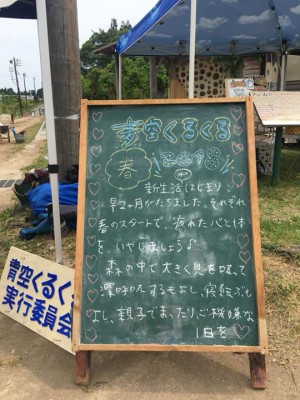 青空くるくる
春
新生活はじまり、
早2ヶ月がたちました。それぞれ
春のスタートで、疲れた心と体
を、いやしましょう♪
森の中で大きく息を吸って
深呼吸するもよし、寝転ぶも
よし、親子でまったりご機嫌な
1日を
青空くるく
実行委員会